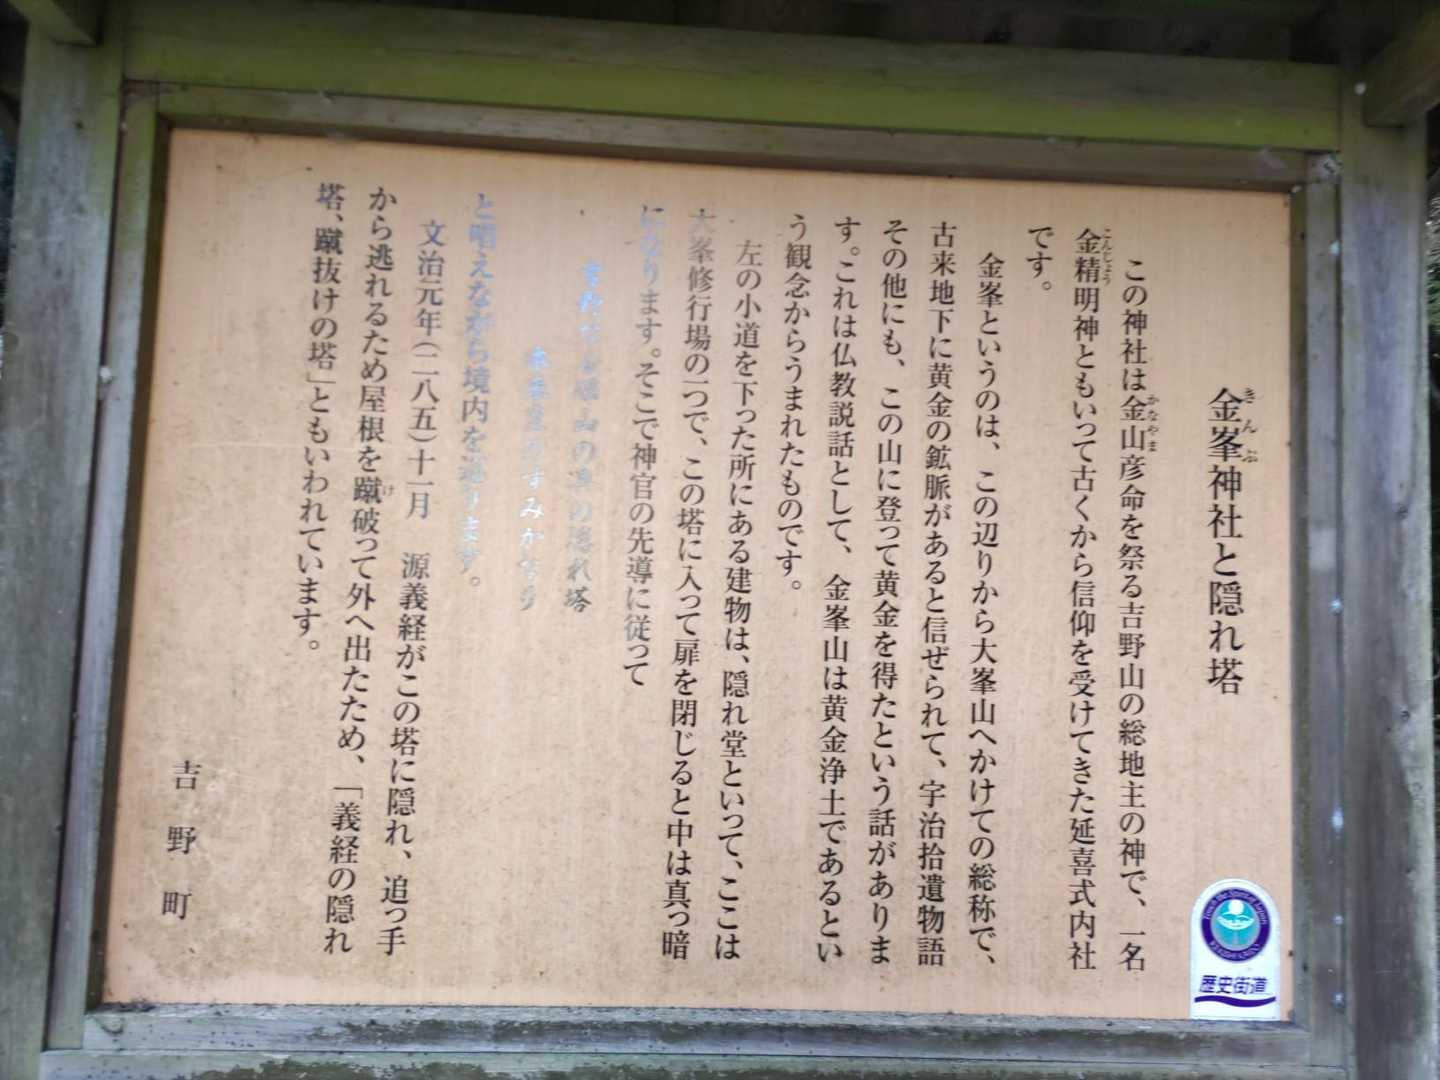 金峯神社と隠れ塔
きんぶ
この神社は金山彦命を祭る吉野山の総地主の神で、一名
かなやま
金精明神ともいって古くから信仰を受けてきた延喜式内社
こんしょう
です。
金峯というのは、この辺りから大峯山へかけての総称で、
古来地下に黄金の鉱脈があると信ぜられて、宇治拾遺物語
その他にも、この山に登って黄金を得たという話がありま
す。これは仏教説話として、金峯山は黄金浄土であるとい
う観念からうまれたものです。
左の小道を下った所にある建物は、隠れ堂といって、ここは
大峯修行場の一つで、この塔に入って扉を閉じると中は真っ暗
になります。そこで神官の先導に従って
の隠れ塔
すみかなり
と唱えながら境内を巡ります。
文治元年(一一八五)十一月 源義経がこの塔に隠れ、追っ手
から逃れるため屋根を蹴破って外へ出たため、「義経の隠れ
け
塔、蹴抜けの塔」ともいわれています。
吉野町
Touch the Spirit of Japan
REKISHI KAIDO
歴史街道